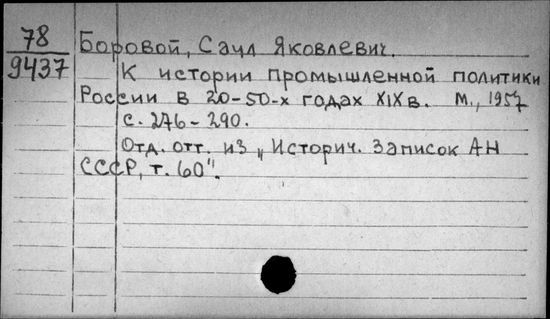 78
9437
Боровой, Саул Яковлевич.
К истории промышленной политики
России в 20-50-х годах XIX в. М., 1957
с. 276-290.
Отд. отт. из „Историч. Записок АН
СССР, т. 60".